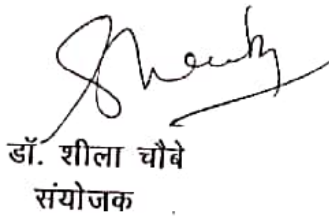 डॉ. शीला चौबे
संयोजक